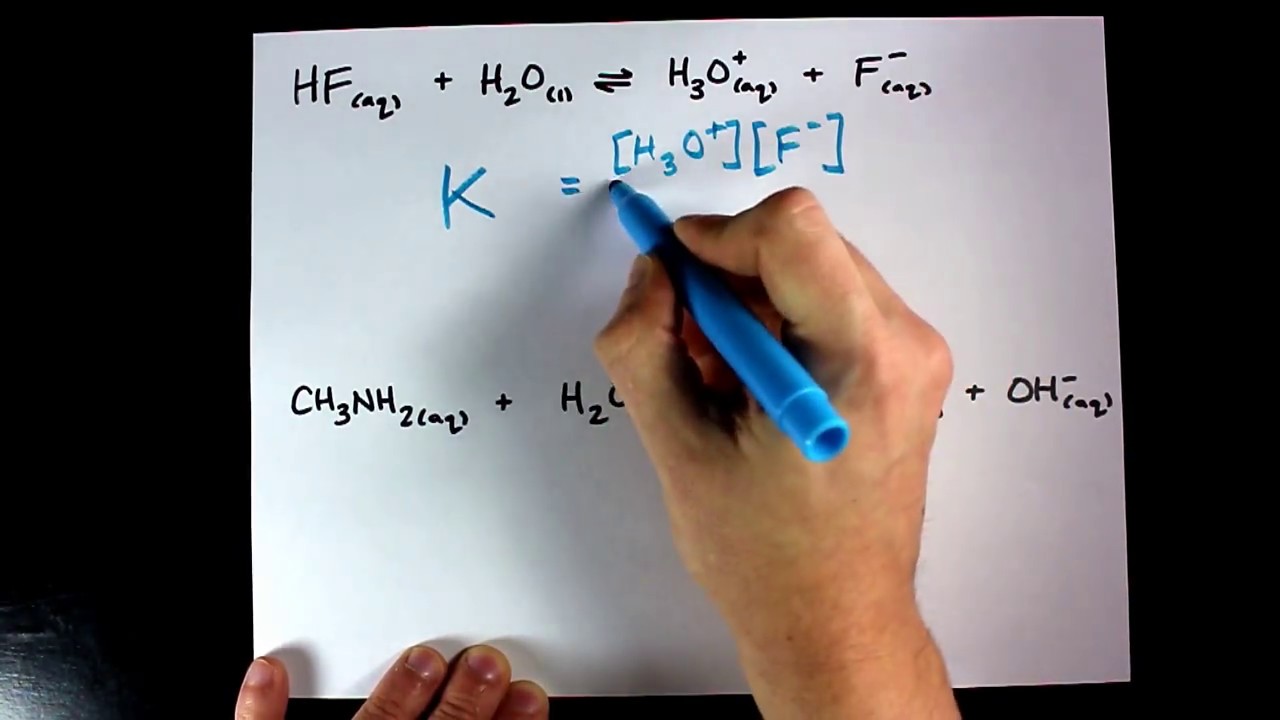 HF(aq) + H₂O(l) ⇌ H₃O⁺(aq) + F⁻(aq)
K = [H₃O⁺][F⁻]
CH₃NH₂(aq) + + OH⁻(aq)